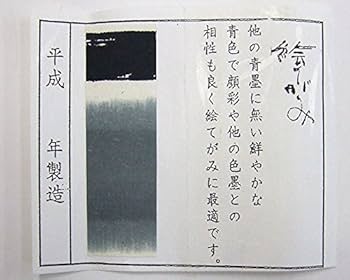 絵てがみ
他の青墨に無い鮮やかな
青色で顔彩や他の色墨との
相性も良く絵てがみに最適です。
平成　年製造